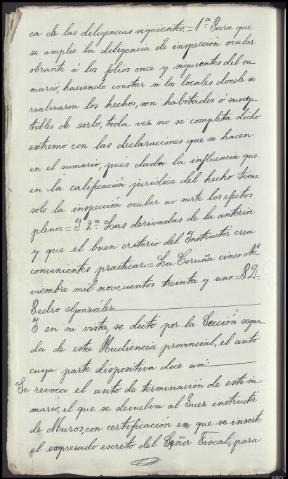 ca de las diligencias siguientes.= 1ª Para que
se amplie la diligencia de inspección ocular
obrante á los fólios once y siguientes del su
mario, haciendo constar si los locales donde se
realizaron los hechos, son habitados ó suscep
tibles de serlo, toda vez no se completa dicho
extremo con las declaraciones que se hacen
en el sumario, pues dada la influencia que
en la calificación juridica del hecho tiene
solo la inspección ocular no surte los efectos
plenos.= Y 2ª Las derivadas de la anterior
y que el buen criterio del Instructor crea
convenientes practicar.= La Coruña cinco No
viembre mil novecientos treinta y uno=
Pedro González.
Y en su vista, se dictó por la Sección segun
da de esta Audiencia provincial, el auto
cuya parte dispositiva dice asi:
Se revoca el auto de terminación de este su
mario, el que se devuelva al Juez instructor
de Muros, con certificación en que se inserte
el expresado escrito del Señor Fiscal, para